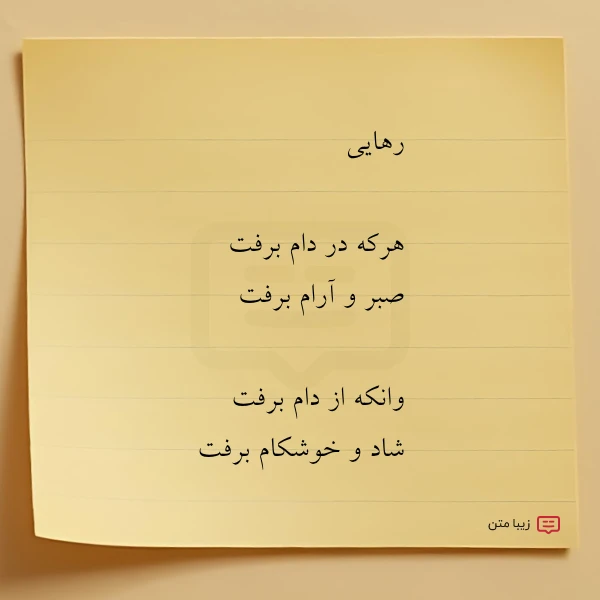 رهایی
هرکه در دام برفت
صبر و آرام برفت
وانکه از دام برفت
شاد و خوشکام برفت
زیبا متن